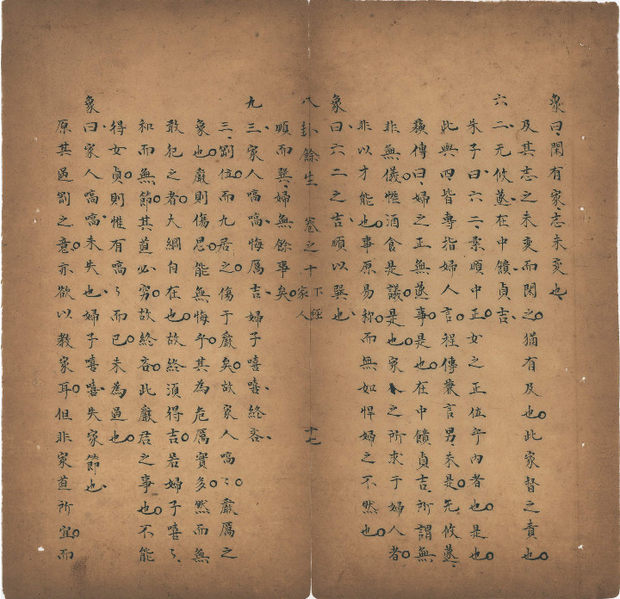 象曰閑有家志未變也
及其志之未變而閑之猶有及也此家督之責也
六二无攸遂在中饋貞吉
朱子曰六二柔順中正女之正位乎內者也是也
此與四皆專指婦人言程傳兼言男未是无攸遂
蘓傳曰婦之正無遂事是也在中饋貞吉所謂無
非無儀惟酒食是議是也家人之所求于婦人者
非以才能也事原易称而無如悍婦之不然也
象曰六二之吉順以巽也
八卦餘生 卷之十 下經 家人 十七
順而巽婦無餘事矣
九三家人嗃嗃悔厲吉婦子嘻嘻終吝
三剛位而九居之傷于嚴矣故家人嗃〻嚴厲之
象也嚴則傷恩能無悔乎其為危厲實多然而無
敢犯之者大綱自在也故終須得吉若婦子嘻〻
和而無節其道必窮故終吝此嚴君之事也不能
得女貞則惟有嗃〻而已未為過也
象曰家人嗃嗃未失也婦子嘻嘻失家節也
原其過剛之意亦欲以教家耳但非家道所宜而